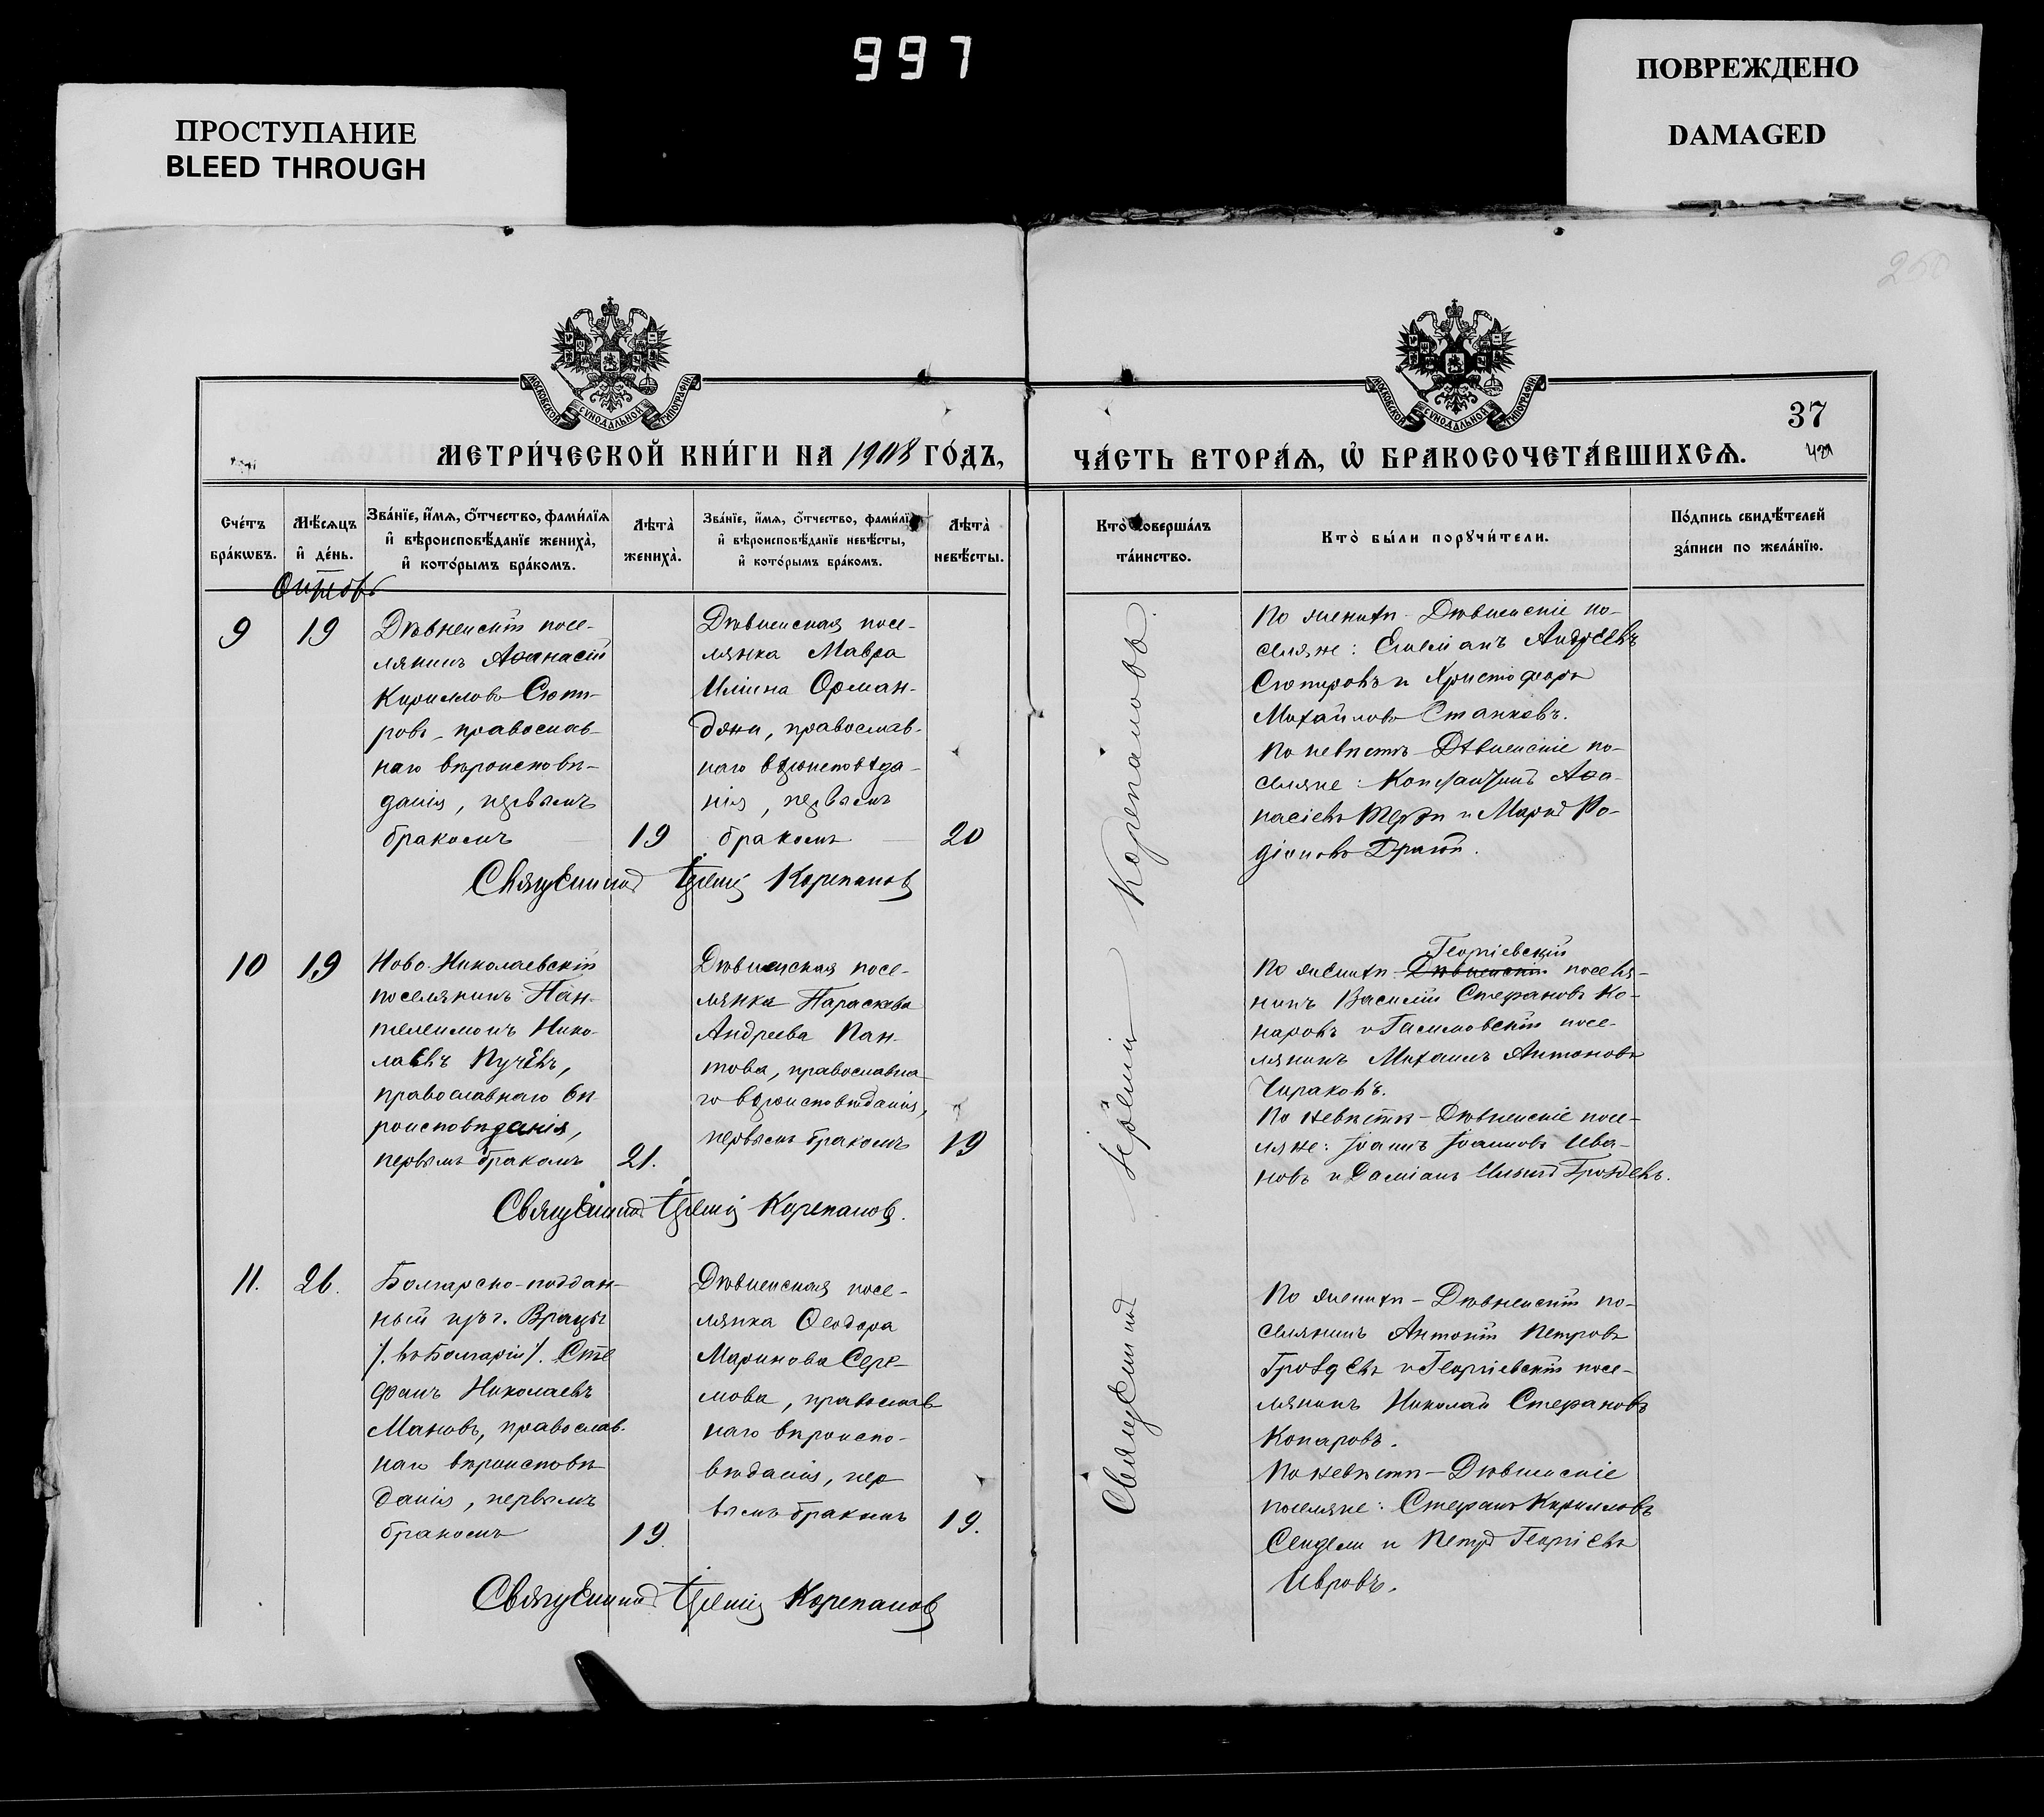 997
ПРОСТУПАНИЕ
BLEED THROUGH
ПОВРЕЖДЕНО
DAMAGED
250
МОСКОВСКОЙ СУНОДАЛЬНОЙ ТИПОГРАФІИ
МОСКОВСКОЙ СУНОДАЛЬНОЙ ТИПОГРАФІИ
37
МЕТРИ́ЧЕСКОЙ КНИ́ГИ НА 1908 ГО́ДЪ,
ЧА́СТЬ ВТОРА́Ѧ, Ѽ БРАКОСОЧЕТА́ВШИХСѦ.
Сче́тъ
бра́кѡвъ.
Мѣ́сѧцъ
и҆ де́нь.
Зва́нїе, и҆́мѧ, ѻ҆́тчество, фами́лїѧ
и҆ вѣроисповѣ́данїе жениха̀,
и҆ кото́рымъ бра́комъ.
Лѣта̀
жениха̀.
Зва́нїе, и҆́мѧ, ѻ҆́тчество, фами́лїѧ
и҆ вѣроисповѣ́данїе невѣ́сты,
и҆ кото́рымъ бра́комъ.
Лѣта̀
невѣ́сты.
Кто̀ соверша́лъ
та́инство.
Кто̀ бы́ли порꙋчи́тели.
По́дпись свидѣ́телей
за́писи по жела́нїю.
Октябь
9
19
Дѣвненскій посе-
лянинъ Аѳанасій
Кирилловъ Сюти-
ровъ, православ-
наго вѣроисповѣ-
данія, первымъ
бракомъ
19
Дѣвненская посе-
лянка Мавра
Иліина Орман-
джи, православ-
наго вѣроисповѣда-
нія, первымъ
бракомъ
20
Священникъ Іеремій Корепановъ
По женихѣ - Дѣвненскіе по-
селяне: Емеліанъ Андреевъ
Сютировъ и Христофоръ
Михайловъ Станковъ.
По невѣстѣ - Дѣвненскіе по-
селяне: Константинъ Аѳа-
насіевъ Терзи и Марко Ро-
діоновъ Драгій.
Священникъ Іеремій Корепановъ.
10
19
Ново-Николаевскій
поселянинъ Пан-
телеимонъ Нико-
лаевъ Пучевъ,
православнаго вѣ
роисповѣданія,
первымъ бракомъ
21.
Дѣвненская посе-
лянка Параскева
Андреева Пан-
това, православна
го вѣроисповѣданія,
первымъ бракомъ
19
Священникъ Іеремій Корепановъ.
Георгіевскій
По женихѣ - Дѣвненскій поселя-
нинъ Василій Стефановъ Ко-
наровъ и поселя-
лянинъ Михаилъ Антоновъ
Чираковъ.
По невѣстѣ - Дѣвненскіе посе-
ляне: Іоаннъ Іоанновъ Ива-
новъ и Даміанъ Ильинъ Гроздевъ.
11.
26.
Болгарско-поддан-
ный изъ г. Врацы
/. въ Болгаріи /. Сте
фанъ Николаевъ
Мановъ, православ-
наго вѣроисповѣ
данія, первымъ
бракомъ
19.
Дѣвненская посе-
лянка Ѳеодора
Маринова Сере-
мова, православ
наго вѣроиспо-
вѣданія, пер
вымъ бракомъ
19.
Священникъ Іеремій Корепановъ
По женихѣ - Дѣвненскій по-
селянинъ Антоній Петровъ
Гроздевъ и Георгіевскій посе-
лянинъ Николай Стефановъ
Конаровъ.
По невѣстѣ - Дѣвненскіе
поселяне: Стефанъ Кирилловъ
Сендели и Петръ Георгіевъ
Ивровъ.